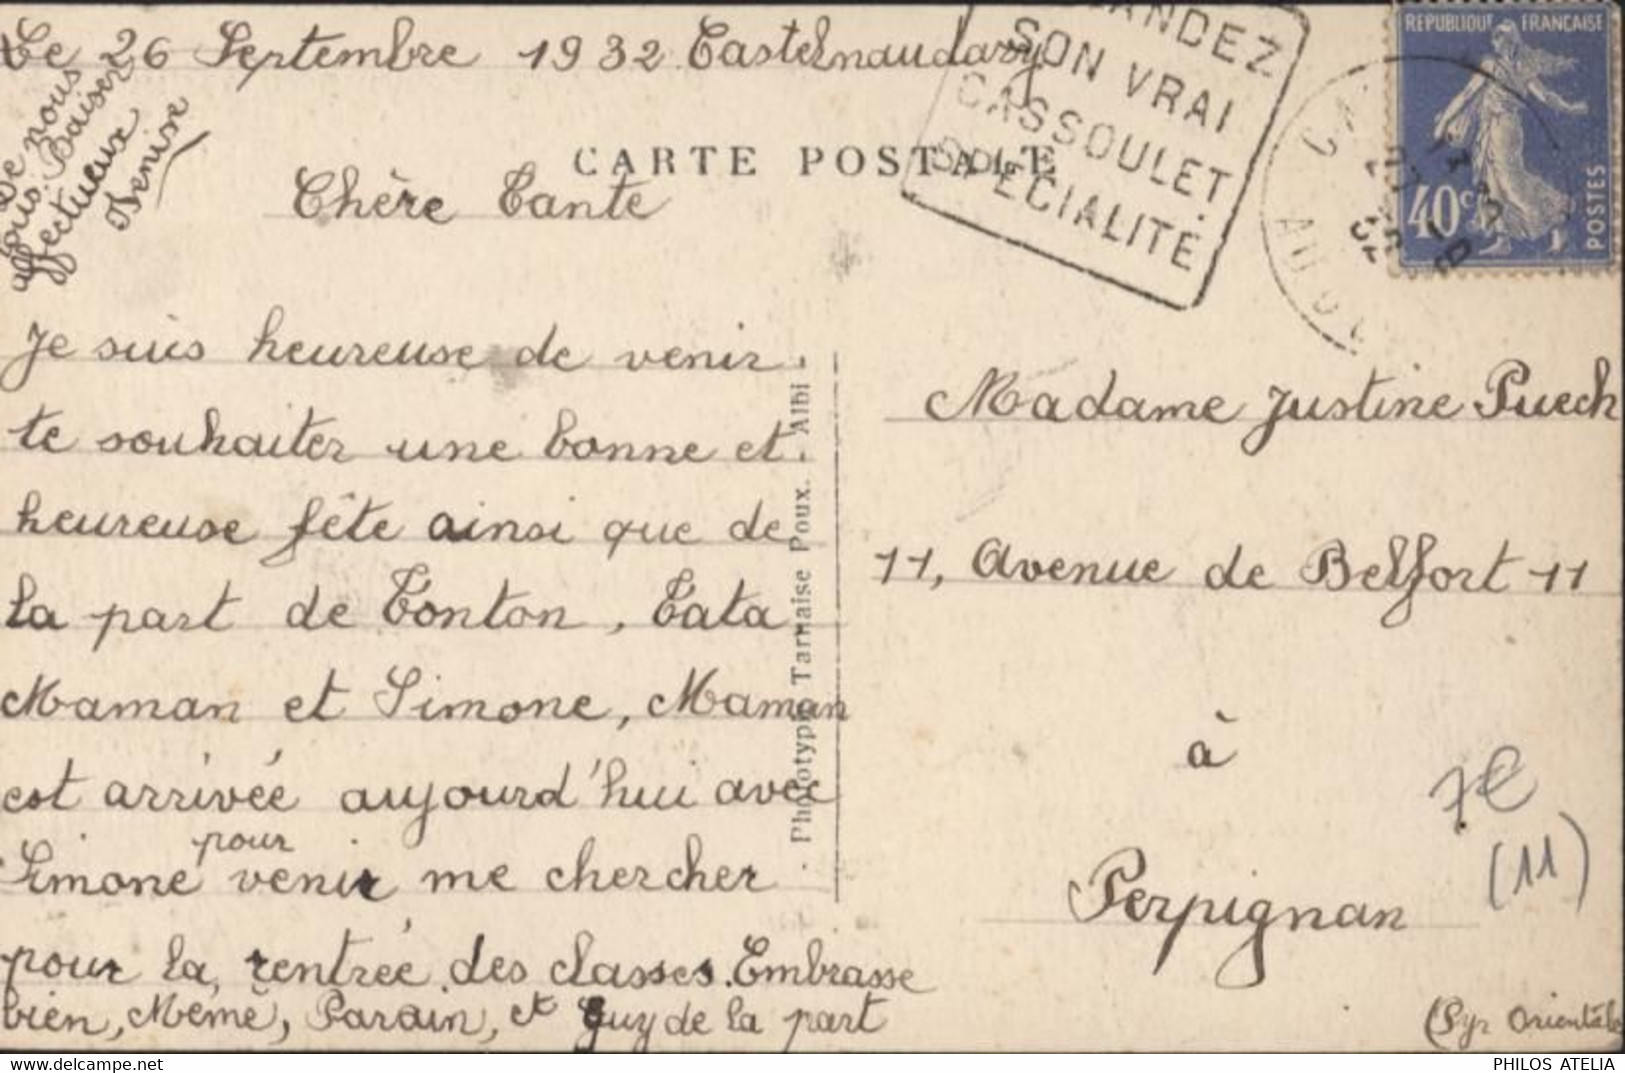 Le 26 Septembre 1932 Castelnaudary
CARTE POSTALE
Chère Tante
Je suis heureuse de venir
te souhaiter une bonne et
heureuse fête ainsi que de
la part de Tonton, Tata
Maman et Simone, Maman
est arrivée aujourd'hui avec
pour
Simone venir me chercher
pour la rentrée des classes. Embrasse
bien, Mémé, Parain, et Guy de la part
De nous
tous. Baiser
affectueux
Denise
Phototypie Tarnaise Poux. - Albi
ANDEZ
SON VRAI
CASSOULET
SPÉCIALITÉ
RÉPUBLIQUE FRANÇAISE
40c
POSTES
AUDE
32
Madame Justine Puech
11, Avenue de Belfort 11
à
Perpignan
(Pyr Orientale
7€
(11)
PHILOS ATELIA
www.delcampe.net